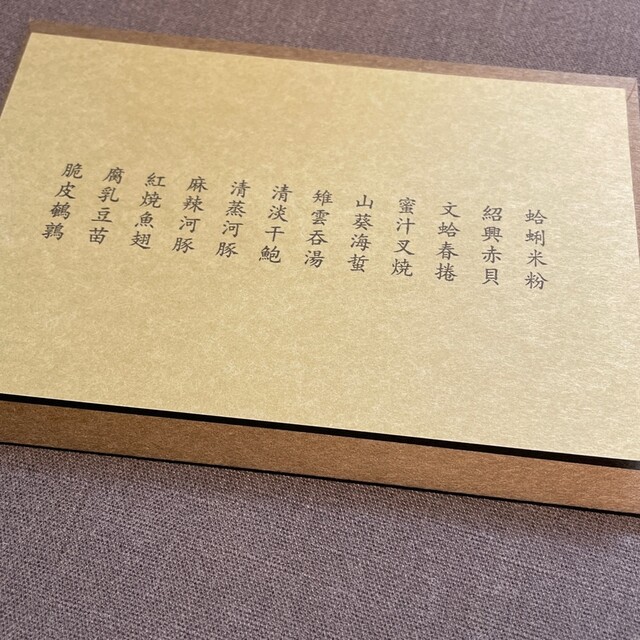 蛤蜊米粉
紹興赤貝
文蛤春捲
蜜汁叉焼
山葵海蜇
雉雲吞湯
清淡干鮑
清蒸河豚
麻辣河豚
紅焼魚翅
腐乳豆苗
脆皮鵪鶉